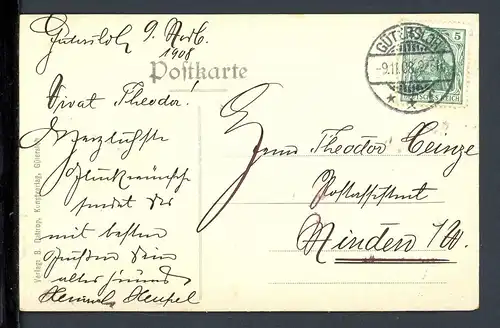 Gütersloh 9. Novb.
1908
Postkarte
Vivat Theodor!
Herzlichste
Glückwünsche
sendet Dir
mit besten
Grüßen Dein
alter Freund
Heinrich Hempel
Herrn Theodor Heinze
Postassistent
Minden i/W.
GÜTERSLOH
-9.11.08.
5
DEUTSCHES REICH
Verlag B. Kunstverlag, Gütersloh